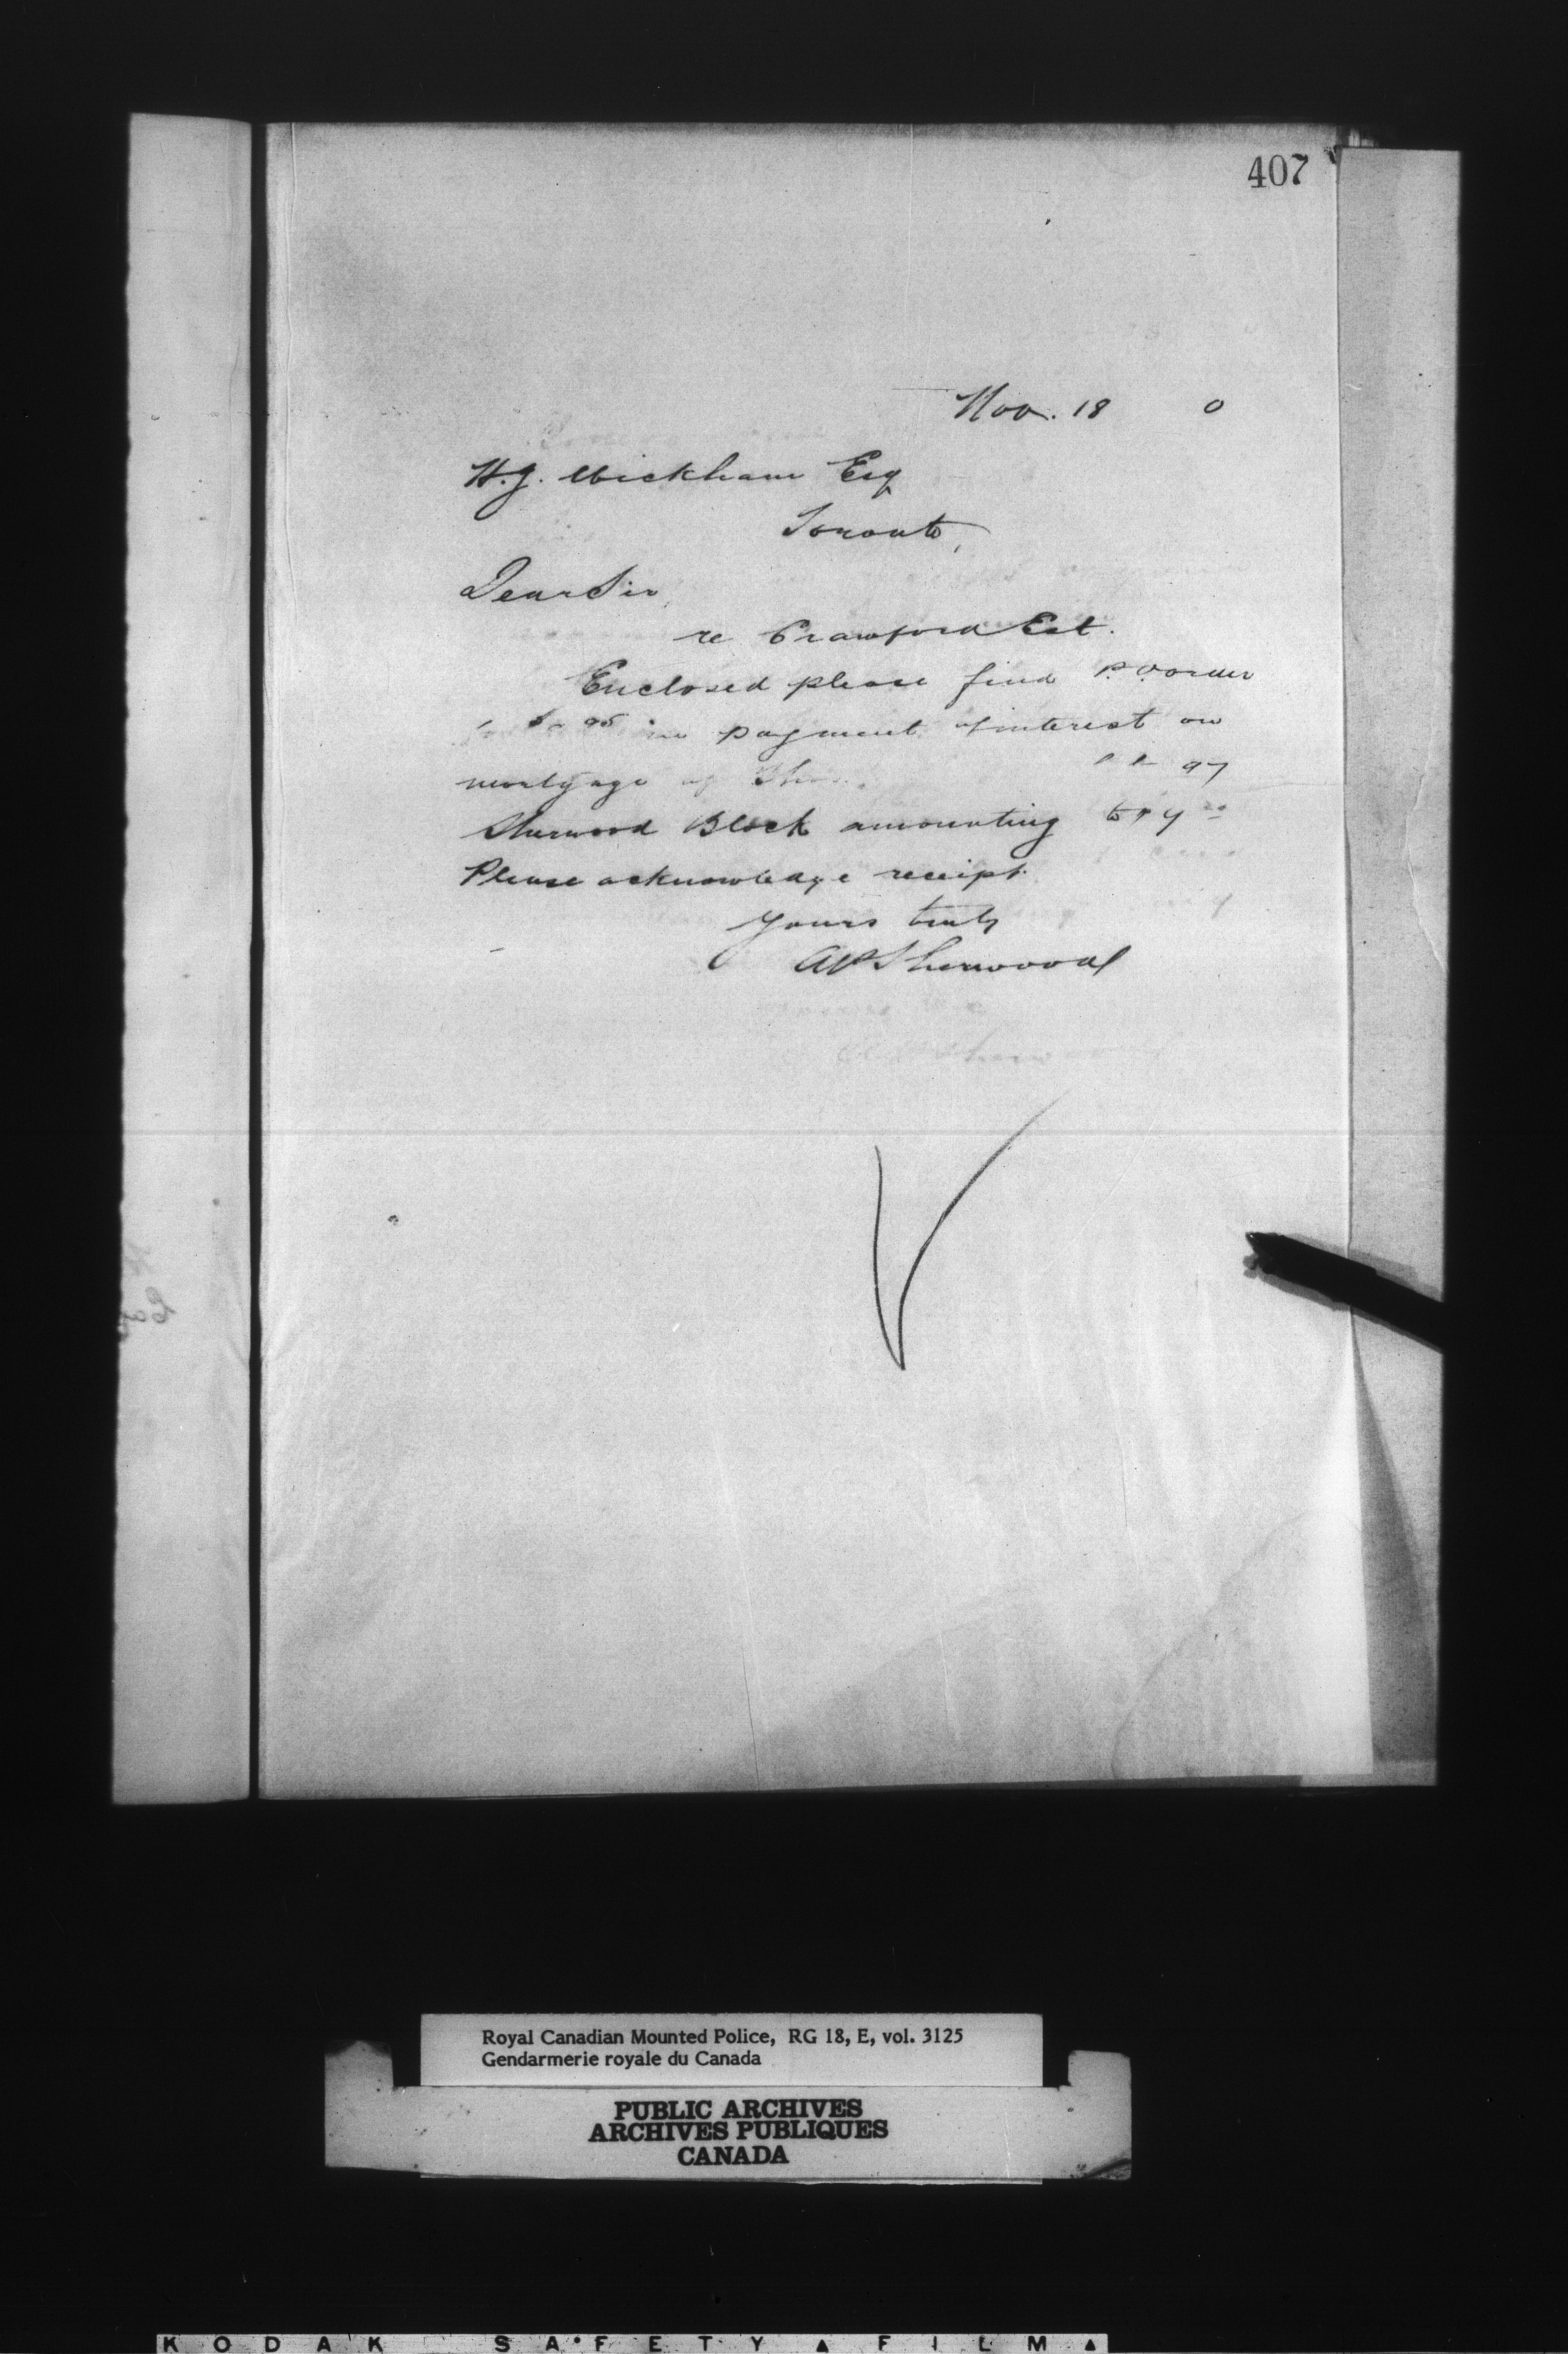 407
Nov. 18 0
H.J. Wickham Esq
Toronto,
Dear Sir
re Crawford Est.
Enclosed please find P.O order
in payment of interest on
mortgage of 97
Sherwood Block amounting to
Please acknowledge receipt
Yours truly
AP Sherwood
Royal Canadian Mounted Police, RG 18, E, vol. 3125
Gendarmerie royale du Canada
PUBLIC ARCHIVES
ARCHIVES PUBLIQUES
CANADA
KODAK SAFETY ▲ FILM ▲